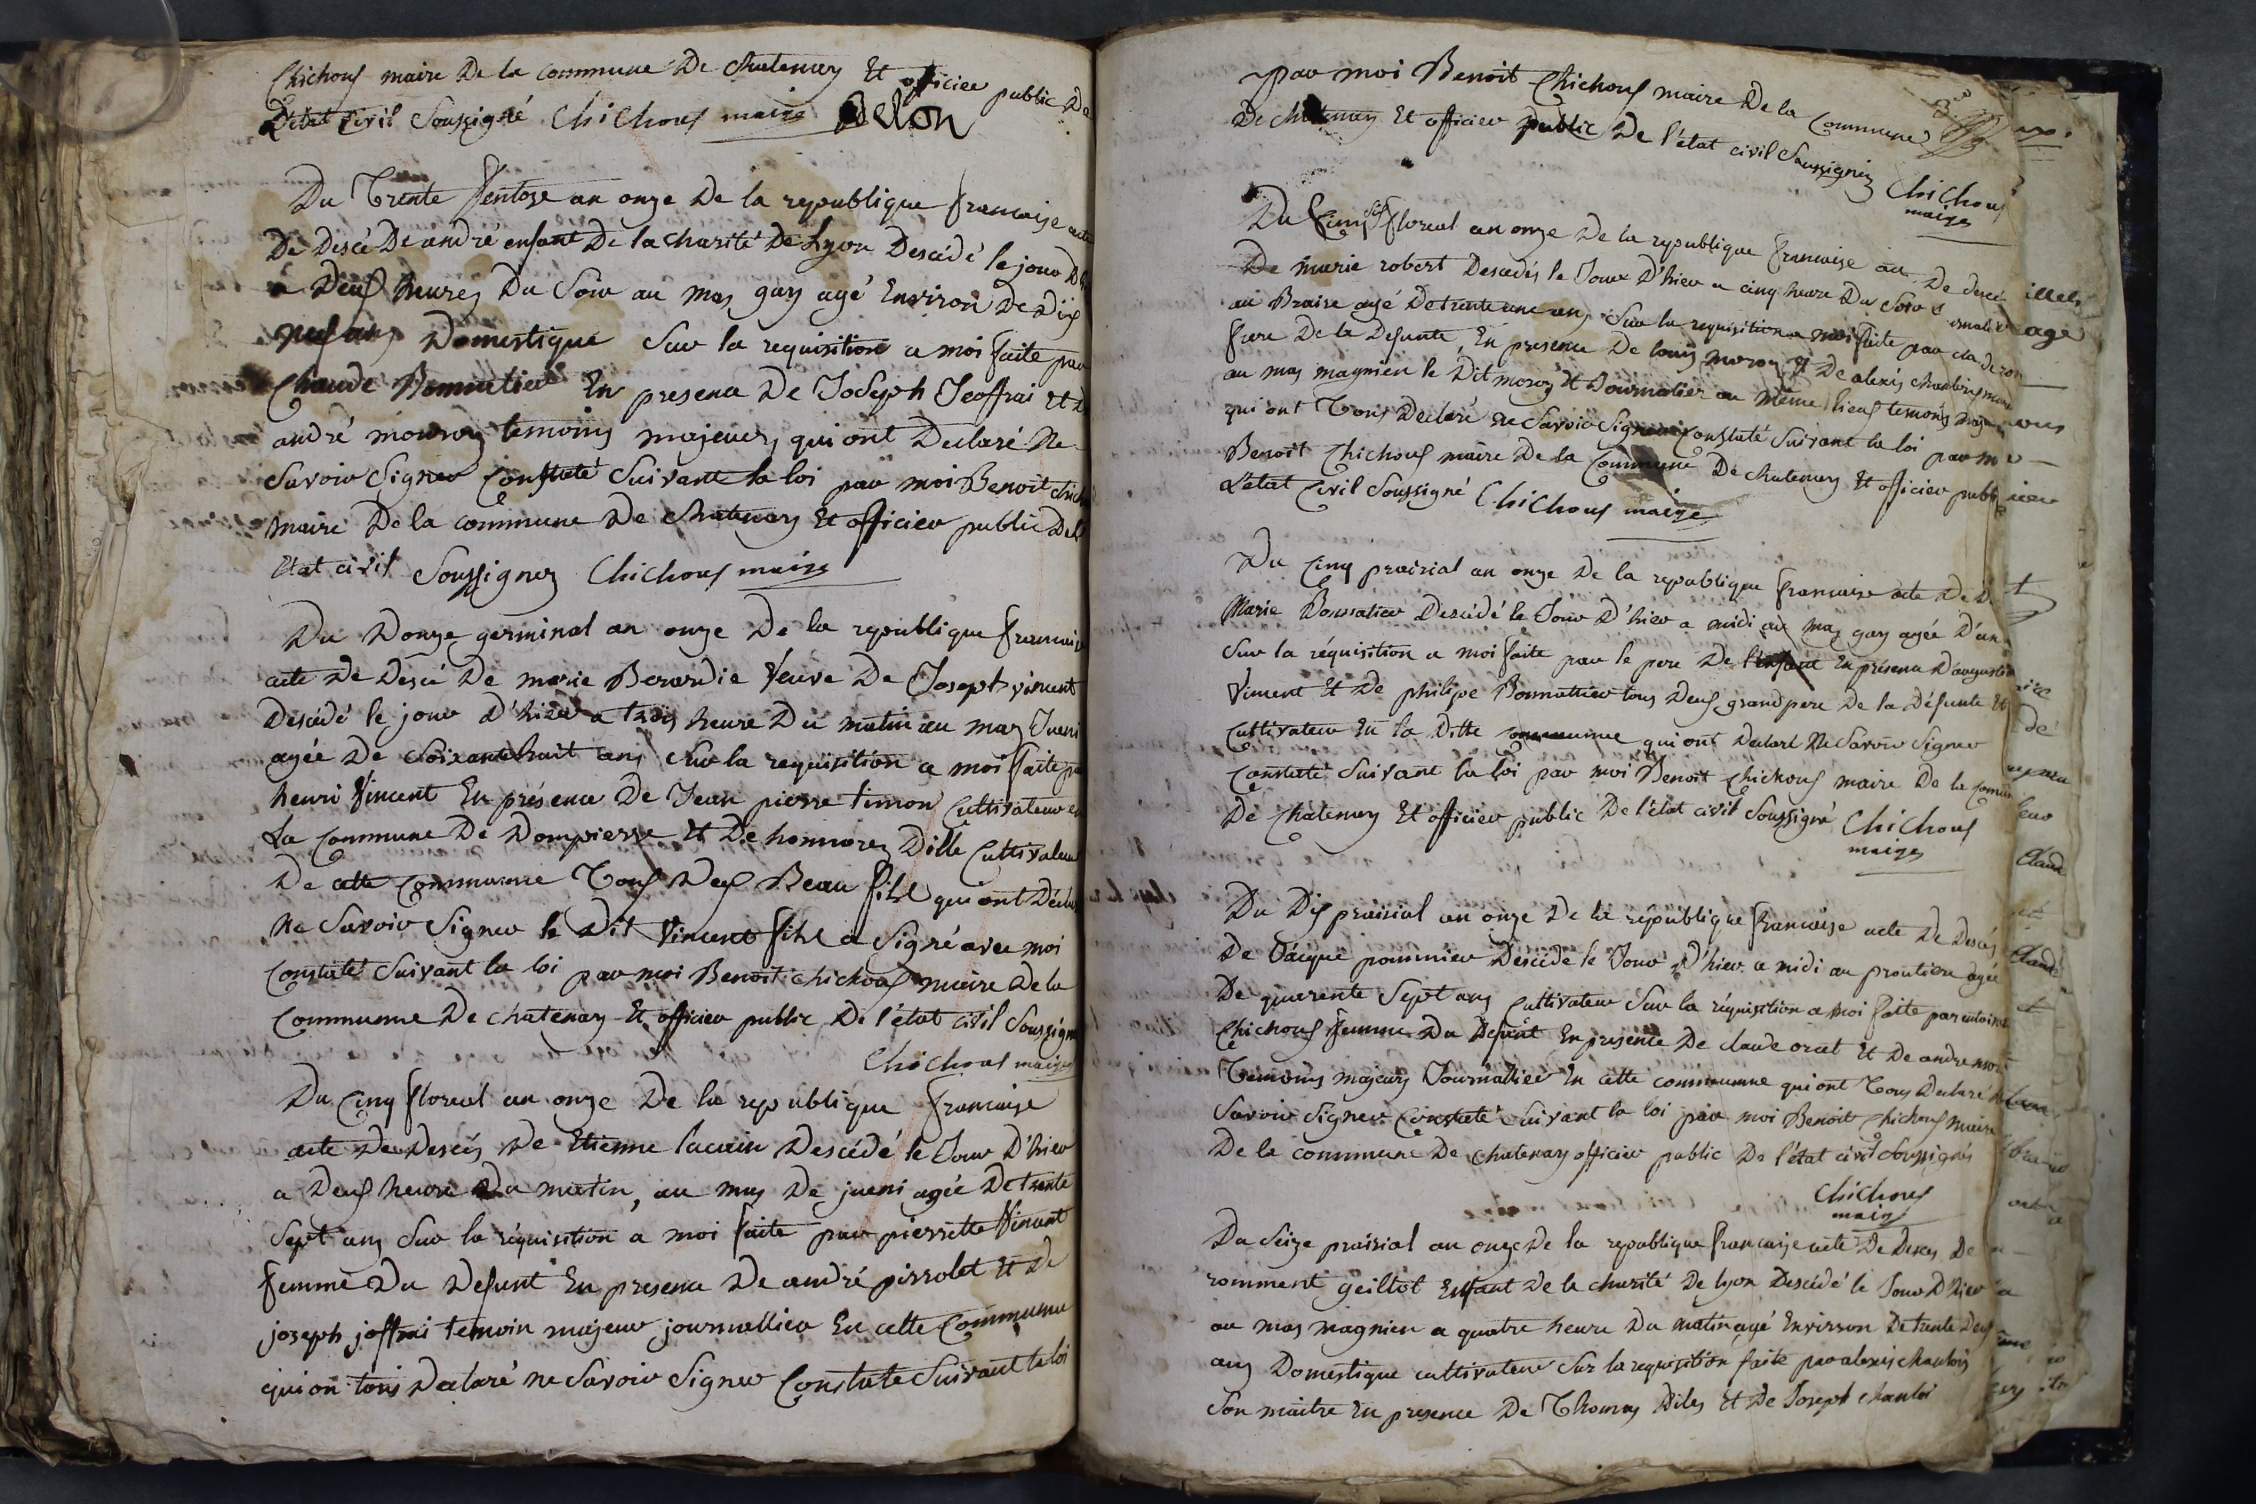 Chichoux maire De la commune De chatenay Et officier public De
L'état Civil Soussigné Chichoux maire Delon
Du Trente Ventose an onze De la republique francaise acte
De Descé De andré enfant De la charité De Lyon Descédé le jour D
a Deux heures Du Soir au mas gay agé Environ De Dix
neuf ans Domestique Sur la requisition a moi faite par
Claude Bonnatier En presence De Joseph Jeoffrai Et D
andré mouron temoins majeurs qui ont Declaré Ne
Savoir Signer Constaté Suivant la loi par moi Benoit chicho
maire De la commune De Chatenay Et officier public De l
Etat civil Soussignez Chichoux maire
Du Douze germinal an onze De la republique francaise
acte De Descé De marie Berardie Veuve De Joseph vincent
Descédé le jour D'hier a trois heure Du matin au mas Jueni
agée De Soixante huit ans Sur la requisition a moi faite pa
henri Vincent En présence De Jean pierre timon Cultivateur en
La Commune De Dompierre Et De honnorez Dille Cultivateur
De cette Commune Tous Deux Beau fils qui ont Décla
Ne Savoir Signer le Dit Vincent fils a Signé avec moi
Constaté Suivant la loi par moi Benoit chichoux maire De la
Commune De chatenay Et officier public De l'état civil Soussigné
Chichoux maire
Du Cinq floreal an onze De la republique francaise
acte De Descés De Etienne lacuin Descédé le Jour D'hier
a Deux heure Du matin, au mas De jueni agée De trente
Sept ans Sur la réquisition a moi faite par pierrette Vincent
femme Du Defunt En presence De andré pirrolet Et De
joseph joffrai temoin majeur journallier En cette Commune
qui on tous Declaré ne Savoir Signer Constate Suivant la loi
Par moi Benoit Chichoux maire De la Commune
De chatenay Et officier public De l'état civil Soussignez Chichoux
maire
Du Cinq floreal an onze De la republique francaise De Descé
De marie robert Descedés le Jour D'hier a cinq heure Du Soir
au Braire agé De trente une ans Sur la requisition a moi faite par
frere De la Defunte, En presence De louis moron Et De alexis
au mas magnien le Dit moron Et Journalier au même lieux temoins
qui ont Tous Declaré ne Savoir Signer Constaté Suivant la loi par m
Benoit Chichoux maire De la Commune De chatenay Et officier publi
L'état Civil Soussigné Chichoux maire
Du Cinq prairial an onze De la republique francaise acte De D
Marie Bonnatier Descédé le Jour D'hier a midi au mas gay agée D'un
Sur la réquisition a moi faite par le pere De l'enfant En présence D'augustin
Vincent Et De philipe Bonnattier tous Deux grandpere De la Défunte Et
Cultivateur En la Ditte commune qui ont Declaré Ne Savoir Signer
Constaté Suivant la loi par moi Benoit Chichoux maire De la Comun
De Chatenay Et officier public De l'état civil Soussigné Chichoux
maire
Du Dix prairial an onze De la république francaise acte De Descés
De Jacque pommier Descédé le Jour D'hier a midi au agée
De quarente Sept ans Cultivateur Sur la réquisition a moi faite par
Chichoux femme Du Defunt En presence De claude orcet Et De andre
Temoins majeurs Journallier En cette commune qui ont Tous Declaré
Savoir Signer Constaté Suivant la loi par moi Benoit Chichoux maire
De la commune De chatenay officier public De l'état civil Soussignés
Chichoux
maire
Du Seize prairial an onze De la republique francaise acte De Desces De
romment geillot Enfant De la charité De lyon Descédé le Jour D'hier
au mas magnien a quatre heure Du matin agé Envirson De trente Deux
ans Domestique cultivateur Sur la requisition faite par alexis chanloi
Son maitre En presence De Thomas Diles Et De Joseph chanloi